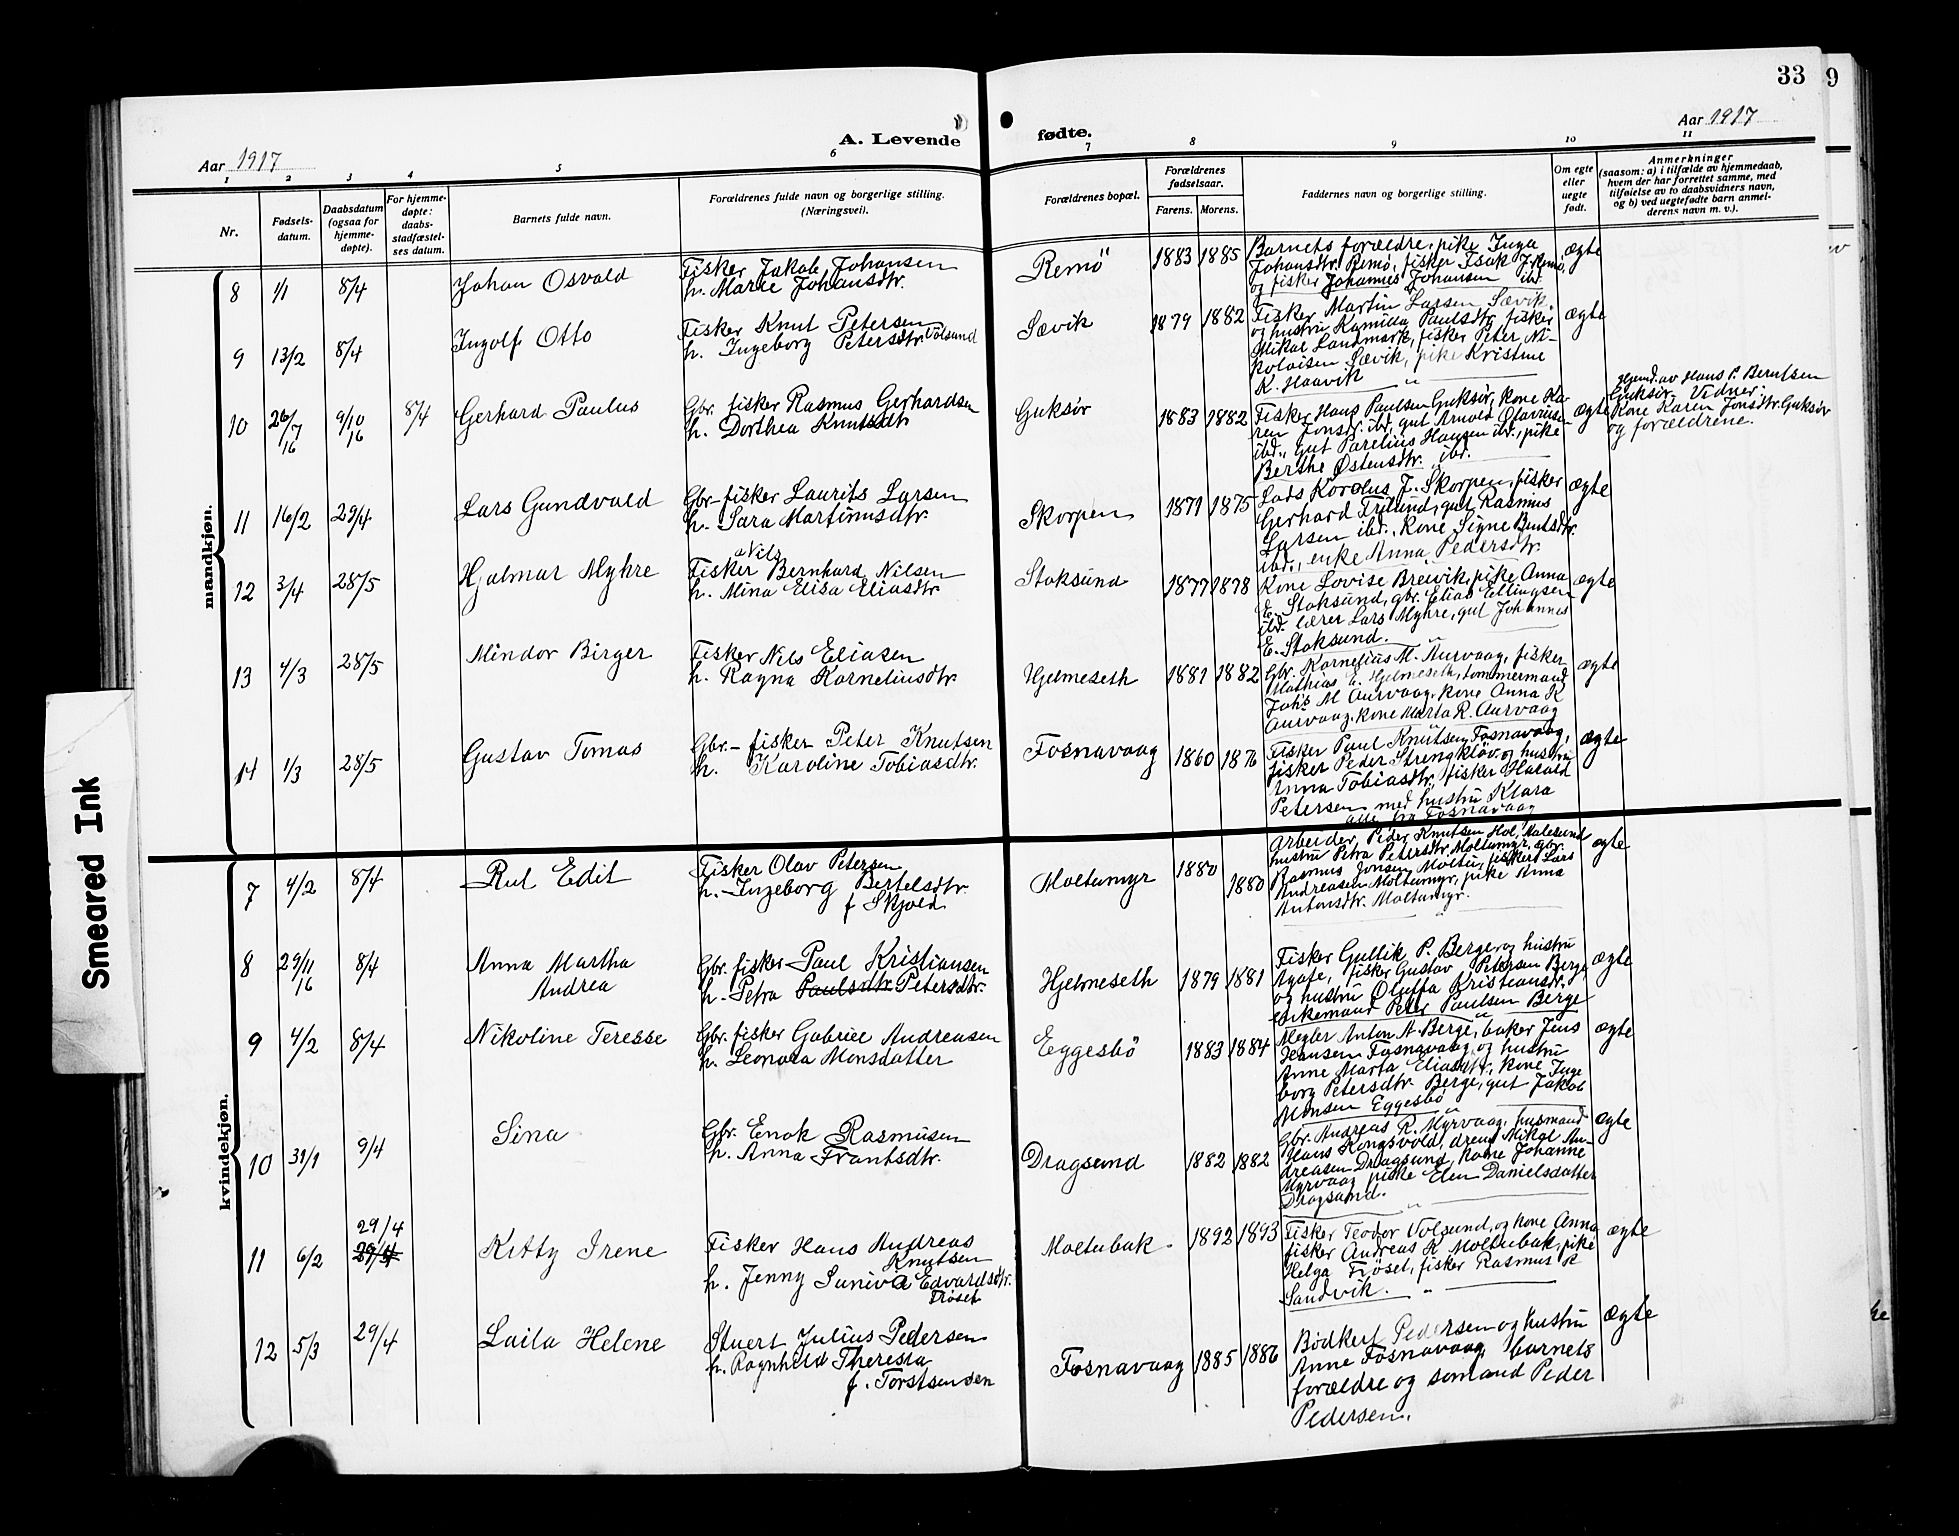 33
9
A. Levende fødte.
Aar 1917
Aar 1917
1
2
3
4
5
6
7
8
9
10
11
Nr.
Fødsels-
datum.
Daabsdatum
(ogsaa for
hjemme-
døpte).
For hjemme-
døpte:
daabs-
stadfæstel-
ses datum.
Barnets fulde navn.
Forældrenes fulde navn og borgerlige stilling.
(Næringsvei).
Forældrenes bopæl.
Forældrenes
fødselsaar.
Farens. Morens.
Faddernes navn og borgerlige stilling.
Om egte
eller
uegte
født.
Anmerkninger
(saasom: a) i tilfælde av hjemmedaab,
hvem der har forrettet samme, med
tilføielse av to daabsvidners navn,
og b) ved uegtefødte barn anmel-
derens navn m. v.).
mandkjøn.
8 1/1 8/4 Johan Osvald
Fisker Jakob Johansen
h. Marie Johansdtr.
Remö 1883 1885
Barnets forældre, pike Inga
Johansdtr. Remö, fisker Isak J. Remö,
og fisker Johannes Johansen ibd.
ægte
9 13/2 8/4 Ingolf Otto
Fisker Knut Petersen
h. Ingeborg Petersdtr. Volsund
Sævik 1879 1882
Fisker Martin Larsen Sævik,
og hustru Kamilla Paulsdtr, fisker
Mikal Landmark, fisker Peter Ni-
kolaisen Sævik, pike Kristine
K. Haavik
ægte
10 26/7 16 9/10 16 8/4 Gerhard Paulus
Gbr. fisker Rasmus Gerhardsen
h. Dorthea Knutsdtr
Guksör 1883 1882
Fisker Hans Paulsen Guksör, kone Ka-
ren Jonsdtr. ibd, gut Arnold Olavsen
ibd., gut Parelius Hansen ibd., pike
Berthe Østensdtr. ibd.
ægte
Hjemd. av Hans P. Berntsen
Guksör. Vidner:
Kone Karen Jonsdtr. Guksör
og forældrene.
11 16/2 29/4 Lars Gundvald
Gbr- fisker Laurits Larsen
h. Sara Martinusdtr.
Skorpen 1871 1875
Lods Korolus J. Skorpen, fisker
Gerhard Frilund, gut Rasmus
Larsen ibd., kone Signe Bentsdtr.
ibd., enke Anna Pedersdtr.
ægte
12 3/4 28/5 Hjalmar Myhre
Nils
Fisker Bernhard Nilsen
h. Mina Elisa Eliasdtr
Stoksund 1877 1878
Kone Lovise Breivik, pike Anna
E. Stoksund, gbr. Elias Ellingsen
ibd. lærer Lars Myhre, gut Johannes
E. Stoksund.
ægte
13 4/3 28/5 Mindor Birger
Fisker Nils Eliasen
h. Ragna Korneliusdtr
Hjelmeseth 1881 1882
Gbr. Kornelius M. Aurvaag, fisker
Mathias E. Hjelmeseth, tømmermand
Johs M Aurvaag, kone Anna K
Aurvaag, kone Marta R. Aurvaag
ægte
14 1/3 28/5 Gustav Tomas
Gbr- fisker Peter Knutsen
h. Karoline Tobiasdtr.
Fosnavaag 1860 1876
Fisker Paul Knutsen Fosnavaag,
fisker Peder Strengkløv. og hustru
Anna Tobiasdtr, fisker Harald
Petersen med hustru Klara
alle fra Fosnavaag
ægte
kvindekjøn.
7 4/2 8/4 Rut Edit
Fisker Olav Petersen
h. Ingeborg Bertelsdtr.
f Skjold
Moltumyr 1880 1880
Arbeider Peder Knutsen Hol, Aalesund
hustru Petra Petersdtr. Moltumyr, gbr.
Rasmus Jonsen Moltu, fisker Lars
Andreasen Moltumyr, pike Anna
Antonsdtr. Moltumyr.
ægte
8 29/11 16 8/4 Anna Martha
Andrea
Gbr. fisker Paul Kristiansen
h. Petra Paulsdtr. Petersdtr.
Hjelmeseth 1879 1881
Fisker Gullik P. Berge og hustru
Agate, fisker Gustav Petersen Berge
og hustru Oluffa Kristiansdtr.
Enkemand Peter Paulsen Berge
ægte
9 4/2 8/4 Nikoline Teresse
Gbr. fisker Gabriel Andreasen
h. Leonora Monsdatter
Eggesbö 1883 1884
Megler Anton A. Berge, baker Jens
Hansen Fosnavaag og hustru
Anne Marta Eliasdtr, kone Inge
borg Petersdtr. Berge, gut Jakob
Monsen Eggesbö
ægte
10 31/1 9/4 Sina
Gbr. Enok Rasmusen
h. Anna Frantsdtr.
Dragsund 1882 1882
Gbr. Andreas R. Myrvaag, husmand
Hans Kongsvold, dreng Mikal An-
dreasen Dragsund, kone Johanne
Myrvaag pike Elen Danielsdatter
Dragsund.
ægte
11 6/2 29/4 29/4 Kitty Irene
Fisker Hans Andreas
Knutsen
h. Jenny Suniva Edvardsdtr.
Frøset
Moltubak. 1892 1893
Fisker Teodor Volsund, og kone Anna
fisker Andreas K Moltubak, pike
Helga Frøset, fisker Rasmus K
Sandvik.
ægte
12 5/3 29/4 Laila Helene
Stuert Julius Pedersen
h. Ragnhild Theresia
f. Torstsensen
Fosnavaag 1885 1886
Bødker Pedersen og hustru
Anne Fosnavaag barnets
forældre og sømand Peder
Pedersen.
ægte
Smeared Ink